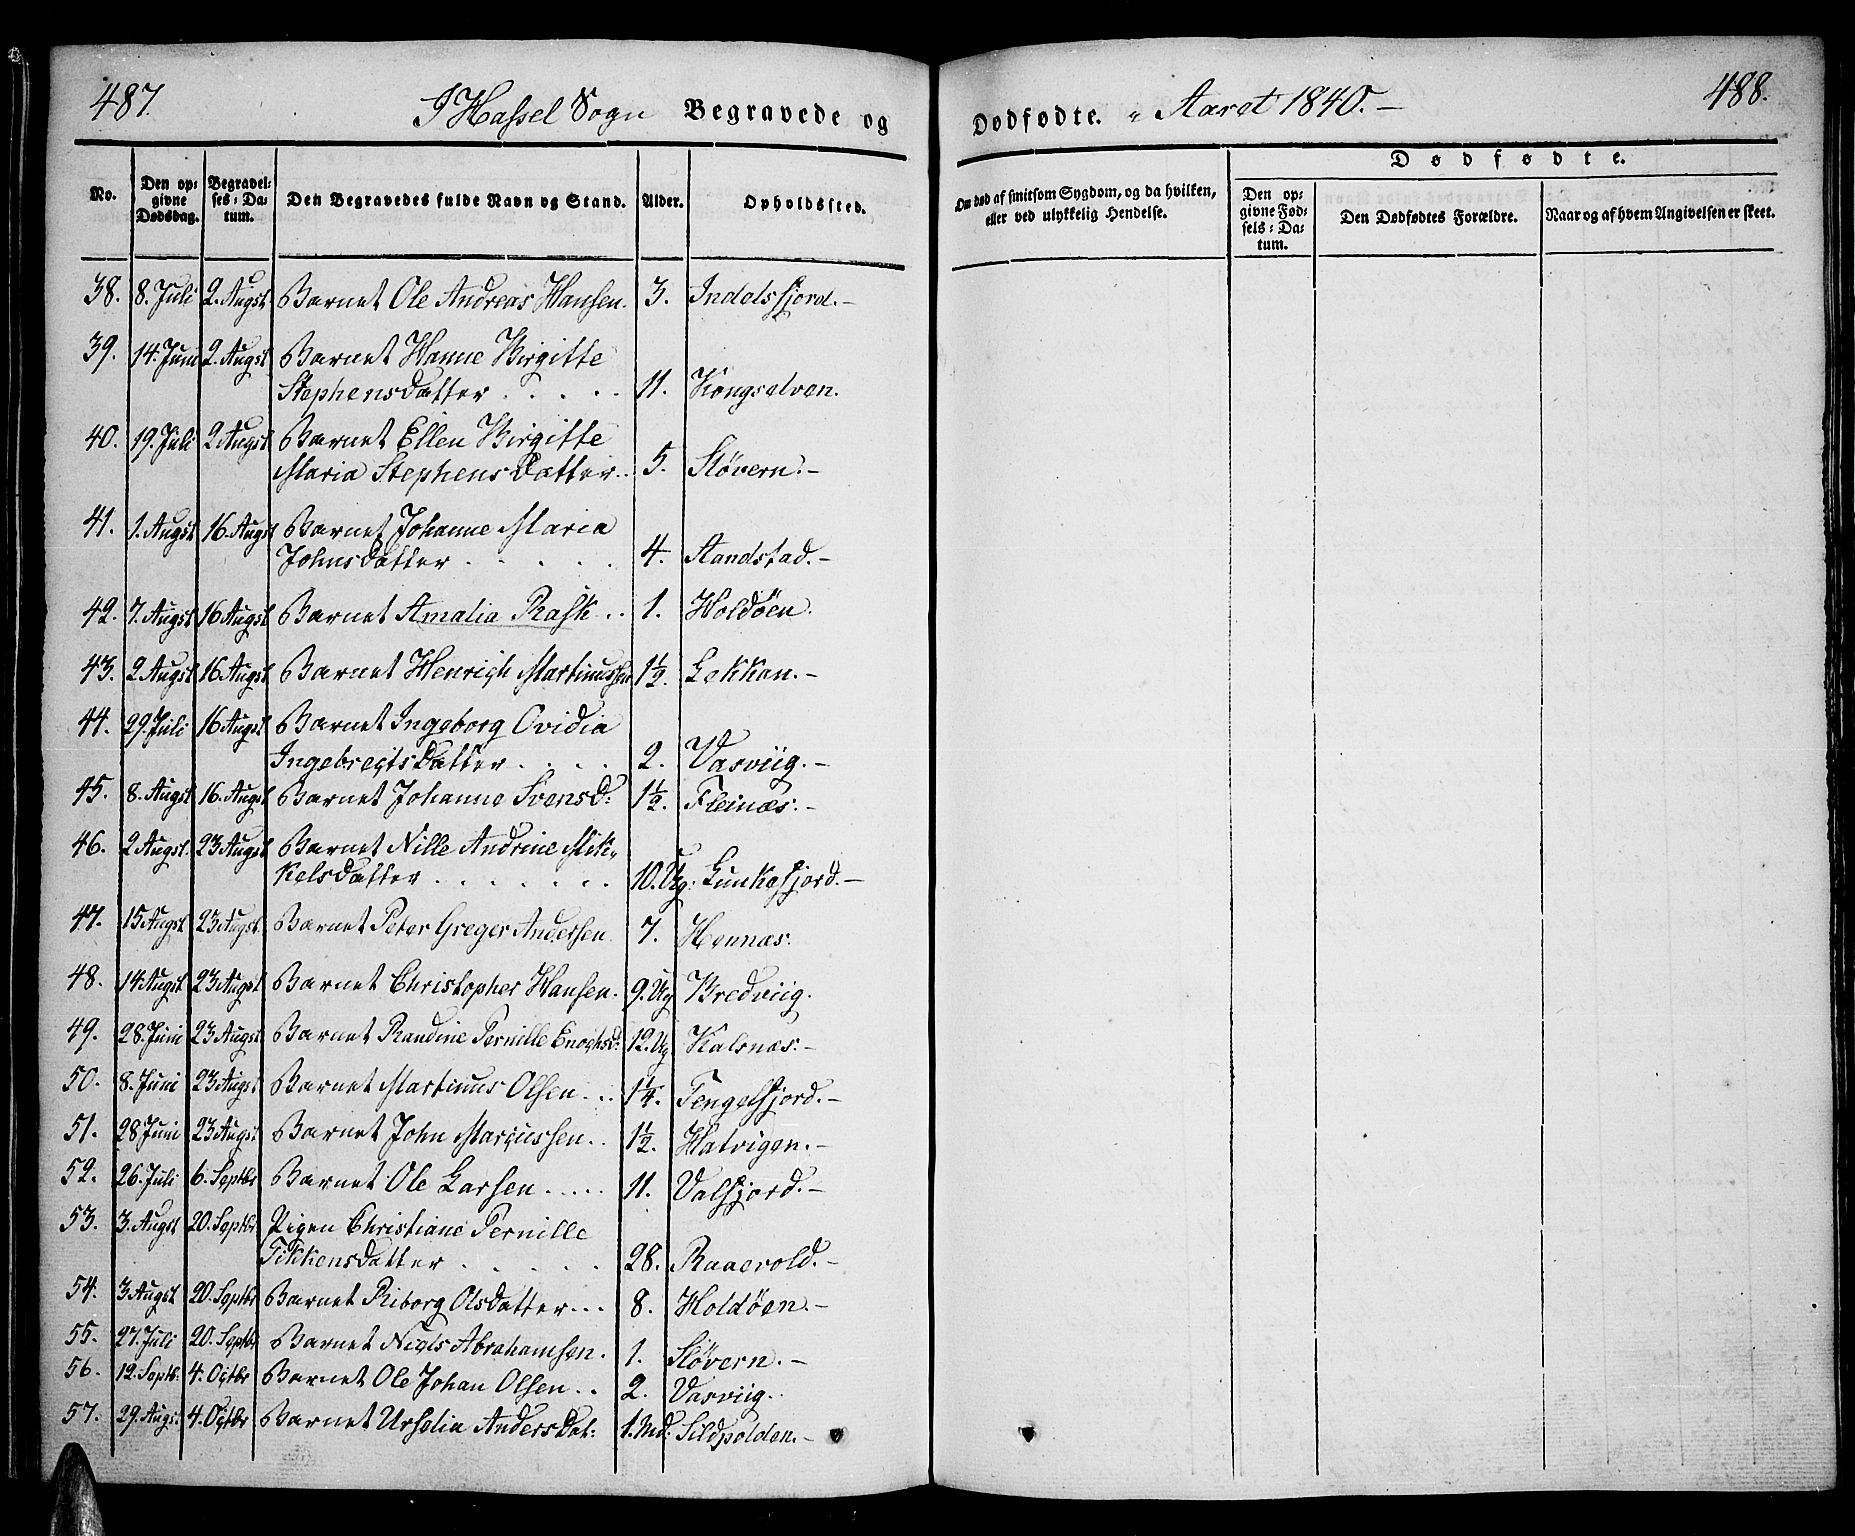 487.
I Hassel Sogn Begravede og
Dødfødte. „ Aaret 1840.-
488.
No.
Den opgivne Dødsdag.
Begravelses-Datum.
Den Begravedes fulde Navn og Stand.
Alder.
Opholdssted.
Om død af smitsom Sygdom, og da hvilken, eller ved ulykkelig Hendelse.
Dødfødte.
Den opgivne Fødsels-Datum.
Den Dødfødtes Forældre.
Naar og af hvem Angivelsen er skeet.
38. 8. Juli 2. Augst Barnet Ole Andreas Hansen. 3. Indelsfjord.-
39. 14. Juni 2. Augst Barnet Hanne Birgitte
Stephensdatter . . . . . 11. Kongselven.
40. 19. Juli 2 Augst Barnet Ellen Birgitte
Maria Stephensdatter.. 5. Sløvern.-
41. 1. Augst 16. Augst Barnet Johanne Maria
Johnsdatter . . . . . 4. Sandstad.-
42. 7. Augst 16 Augst Barnet Amalia Rask .. 1. Holdøen.
43. 2 Augst 16 Augst Barnet Henrich Martinussen 1½. Lekkan.-
44. 29. Juli 16 Augst Barnet Ingeborg Ovidia
Ingebregtsdatter . . . . 2. Vasviig.-
45. 8. Augst 16. Augst Barnet Johanne Svensd: 1½. Fleinæs.-
46. 2 Augst. 23 Augst Barnet Nille Andrine Mik-
kelsdatter . . . . . . 10. Ug: Lunkefjord.-
47. 15 Augst 23 Augst. Barnet Peter Greger Andersen 7. Hennæs.
48. 14 Augst 23 Augst Barnet Christopher Hansen. 9. Ug Bredviig.
49. 28. Juni 23 Augst. Barnet Randine Pernille Enochsd: 12. Ug Kalsnæs.-
50. 8. Juni 23 Augst Barnet Martinus Olsen . . . 1¼. Tengelfjord.-
51. 28 Juni 23 Augst. Barnet John Marcussen.. 1½. Hatvigen.-
52. 26. Juli 6. Septbr Barnet Ole Larsen ..... 11. Valfjord.-
53. 3. Augst 20. Septbr Pigen Christiane Pernille
Tikkensdatter . . . . . 28. Raaevold.-
54. 3 Augst 20. Septbr Barnet Riborg Olsdatter... 8. Holdøen.-
55. 27. Juli 20. Septbr Barnet Niels Abrahamsen. 1. Sløvern.-
56. 12. Septb. 4. Octbr Barnet Ole Johan Olsen.. 2. Vasviig.
57. 29. Augs. 4. Octbr Barnet Urselia Andersdat: 1. Md: Sildpolden.-